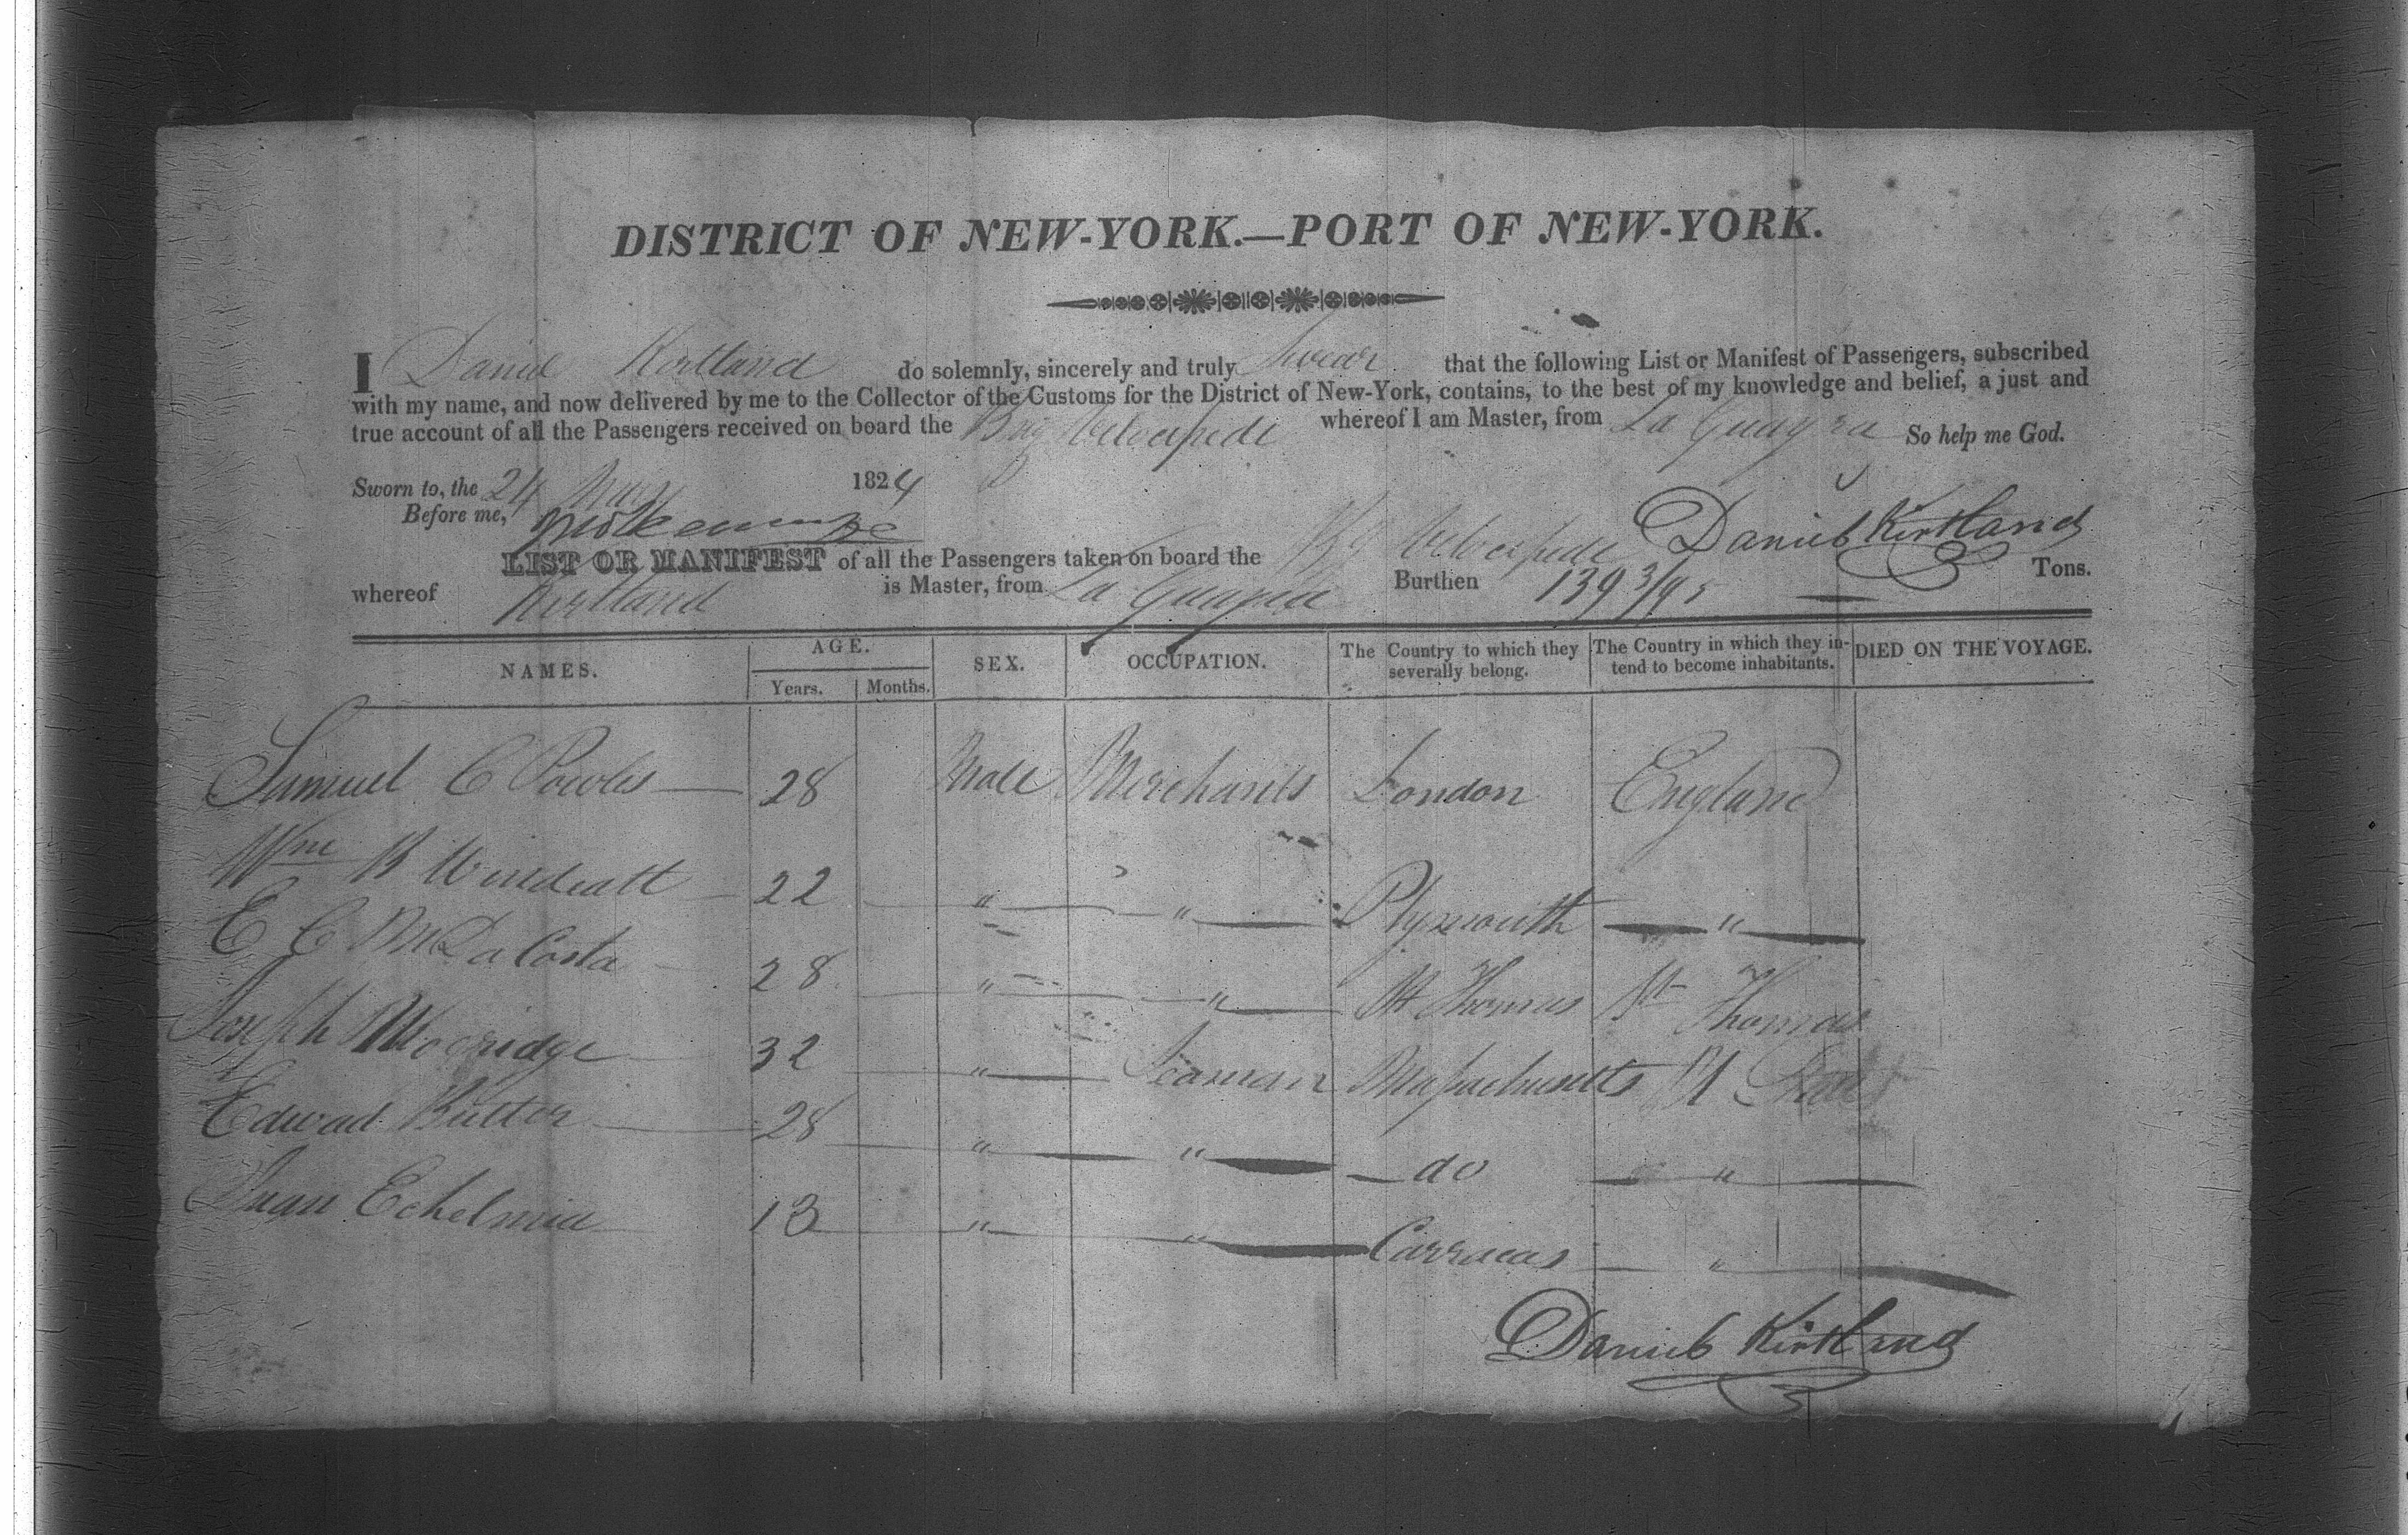 DISTRICT OF NEW-YORK.—PORT OF NEW-YORK.
I Daniel Kirtland do solemnly, sincerely and truly Swear that the following List or Manifest of Passengers, subscribed
with my name, and now delivered by me to the Collector of the Customs for the District of New-York, contains, to the best of my knowledge and belief, a just and
true account of all the Passengers received on board the Brig Velocipede whereof I am Master, from La Guayra So help me God.
Sworn to, the 24 May 1824
Before me, Daniel Kirtland
LIST OR MANIFEST of all the Passengers taken on board the Velocipede
whereof Kirtland is Master, from La Guayra Burthen 139 3/95 Tons.
NAMES. AGE. Years. Months. SEX. OCCUPATION. The Country to which they severally belong. The Country in which they intend to become inhabitants. DIED ON THE VOYAGE.
Samuel C Powles 28 Male Merchants London England
Wm B Windeatt 22 " " Plymouth "
E C M Da Costa 28 " " St Thomas St Thomas
Joseph 32 " Seaman Massachusetts
Edward Butter 28 " " do "
Juan 13 " " Carracas "
Daniel Kirtland